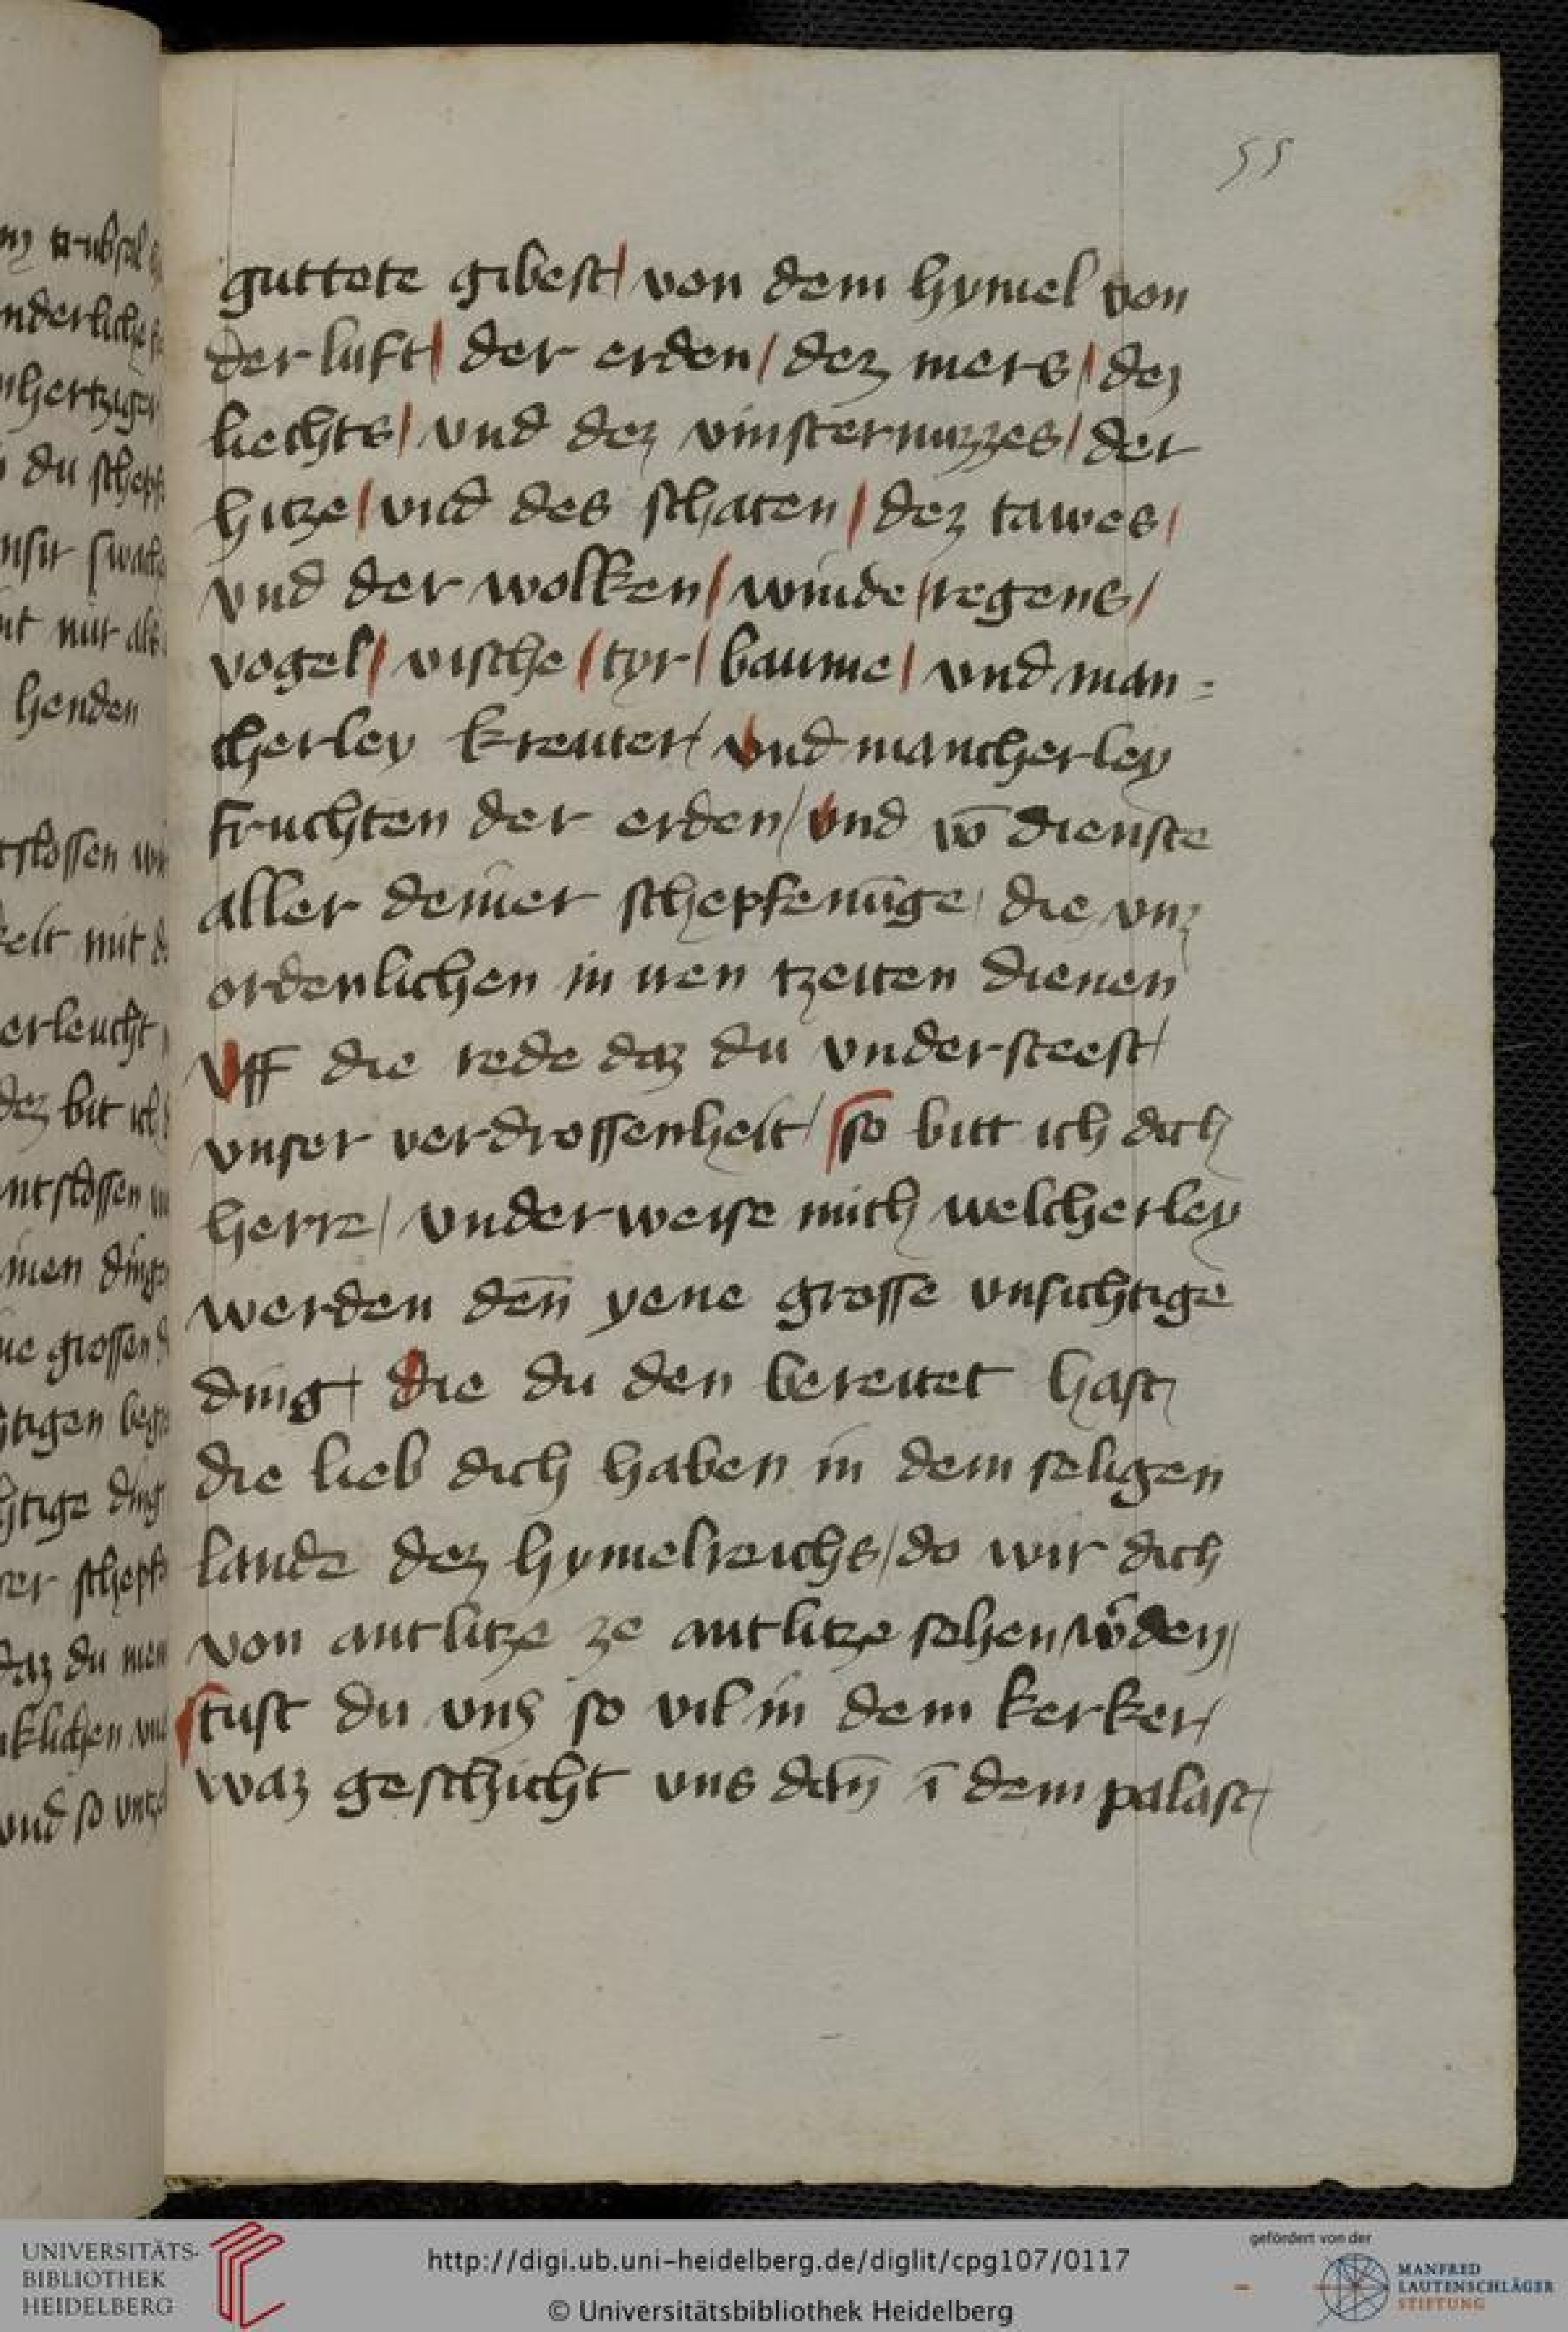 55
guttete gibest / von dem hymel von
der luft / der erden / dez mers / dez
liechts / vnd dez vinsternuzzes / der
hitze / vnd des schaten / dez tawes /
vnd der wolken / winde / regens /
vogel / vische / tyr / baume / vnd man=
cherley kreuter / vnd mancherley
fruchten der erden / vnd vō dienste
aller deiner schepfenūge / die vnz
ordenlichen in iren tzeiten dienen
Vff die rede daz du understeest /
vnser verdrossenheit / so bitt ich dich
herre / vnderweise mich welcherley
werden den̄ yene grosse vnsichtige
ding / die du den bereitet hast
die lieb dich haben in dem seligen
lande dez hymelreichs / do wir dich
von antlitze ze antlitze sehen w̄den /
tust du vnß so vil in dem kerker /
waz geschicht uns dan̄ ī dem palast /
henden
UNIVERSITÄTS-
BIBLIOTHEK
HEIDELBERG
http://digi.ub.uni-heidelberg.de/diglit/cpg107/0117
© Universitätsbibliothek Heidelberg
gefördert von der
MANFRED
LAUTENSCHLÄGER
STIFTUNG